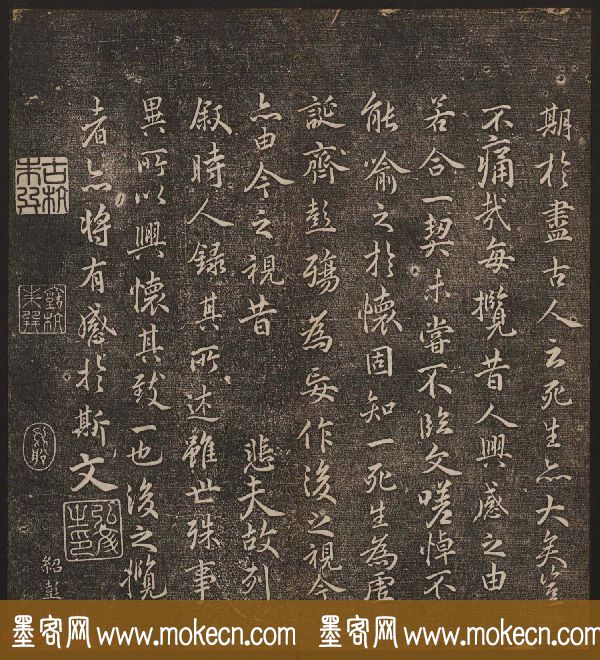 期於盡古人云死生亦大矣豈
不痛哉每攬昔人興感之由
若合一契未嘗不臨文嗟悼不
能喻之於懷固知一死生為虛
誕齊彭殤為妄作後之視今
亦由今之視昔 悲夫故列
叙時人錄其所述雖世殊事
異所以興懷其致一也後之攬
者亦將有感於斯文
紹彭
墨客网 www.mokecn.com 墨客网 www.mokecn.com